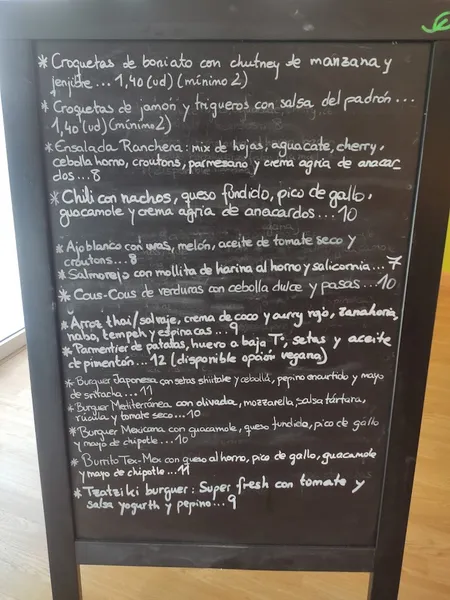 * Croquetas de boniato con chutney de manzana y
jenjibre... 1,40 (ud) (mínimo 2)
* Croquetas de jamón y trigueros con salsa del padrón...
1,40 (ud) (mínimo 2)
* Ensalada Ranchera: mix de hojas, aguacate, cherry,
cebolla horno, croutons, parmesano y crema agria de anacar-
dos... 8
* Chili con nachos, queso fundido, pico de gallo,
guacamole y crema agria de anacardos... 10
* Ajoblanco con uvas, melón, aceite de tomate seco y
croutons... 8
* Salmorejo con mollita de harina al horno y salicornia... 7
* Cous-Cous de verduras con cebolla dulce y pasas... 10
* Arroz thai/salvaje, crema de coco y curry rojo, zanahoria,
nabo, tempeh y espinacas... 9
* Parmentier de patatas, huevo a baja Tª, setas y aceite
de pimentón... 12 (disponible opción vegana)
* Burguer Japonesa con setas shiitake y cebolla, pepino encurtido y mayo
de sriracha... 11
* Burguer Mediterránea con olivada, mozzarella, salsa tártara,
rúcula y tomate seco... 10
* Burguer Mexicana con guacamole, queso fundido, pico de gallo
y mayo de chipotle... 10
* Burrito Tex-Mex con queso al horno, pico de gallo, guacamole
y mayo de chipotle... 11
* Tzatziki burguer: Super fresh con tomate y
salsa yogurth y pepino... 9